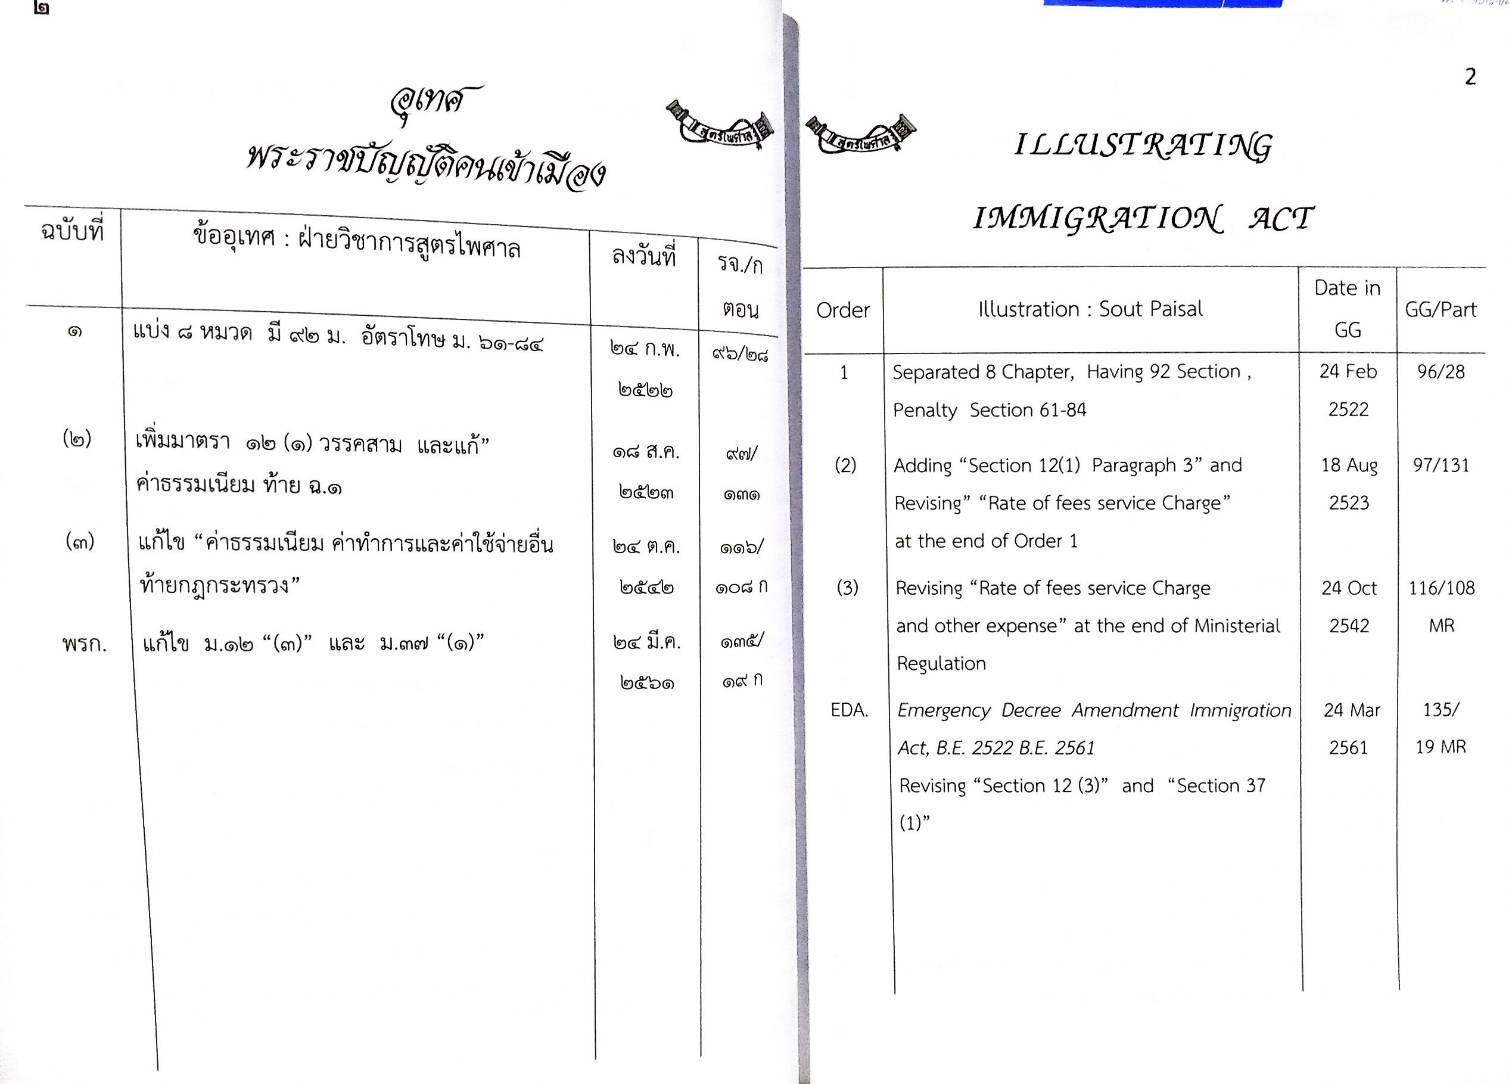 ๒
อุเทศ
พระราชบัญญัติคนเข้าเมือง
สูตรไพศาล
ฉบับที่ ข้ออุเทศ : ฝ่ายวิชาการสูตรไพศาล ลงวันที่ รจ./ก
ตอน
๑ แบ่ง ๘ หมวด มี ๙๒ ม. อัตราโทษ ม. ๖๑-๘๔ ๒๔ ก.พ. ๙๖/๒๘
๒๕๒๒
(๒) เพิ่มมาตรา ๑๒ (๑) วรรคสาม และแก้” ๑๘ ส.ค. ๙๗/
ค่าธรรมเนียม ท้าย ฉ.๑ ๒๕๒๓ ๑๓๑
(๓) แก้ไข “ค่าธรรมเนียม ค่าทำการและค่าใช้จ่ายอื่น ๒๔ ต.ค. ๑๑๖/
ท้ายกฎกระทรวง” ๒๕๔๒ ๑๐๘ ก
พรก. แก้ไข ม.๑๒ “(๓)” และ ม.๓๗ “(๑)” ๒๔ มี.ค. ๑๓๕/
๒๕๖๑ ๑๙ ก
2
สูตรไพศาล
ILLUSTRATING
IMMIGRATION ACT
Order Illustration : Sout Paisal Date in GG/Part
GG
1 Separated 8 Chapter, Having 92 Section , 24 Feb 96/28
Penalty Section 61-84 2522
(2) Adding “Section 12(1) Paragraph 3” and 18 Aug 97/131
Revising” “Rate of fees service Charge” 2523
at the end of Order 1
(3) Revising “Rate of fees service Charge 24 Oct 116/108
and other expense” at the end of Ministerial 2542 MR
Regulation
EDA. Emergency Decree Amendment Immigration 24 Mar 135/
Act, B.E. 2522 B.E. 2561 2561 19 MR
Revising “Section 12 (3)” and “Section 37
(1)”